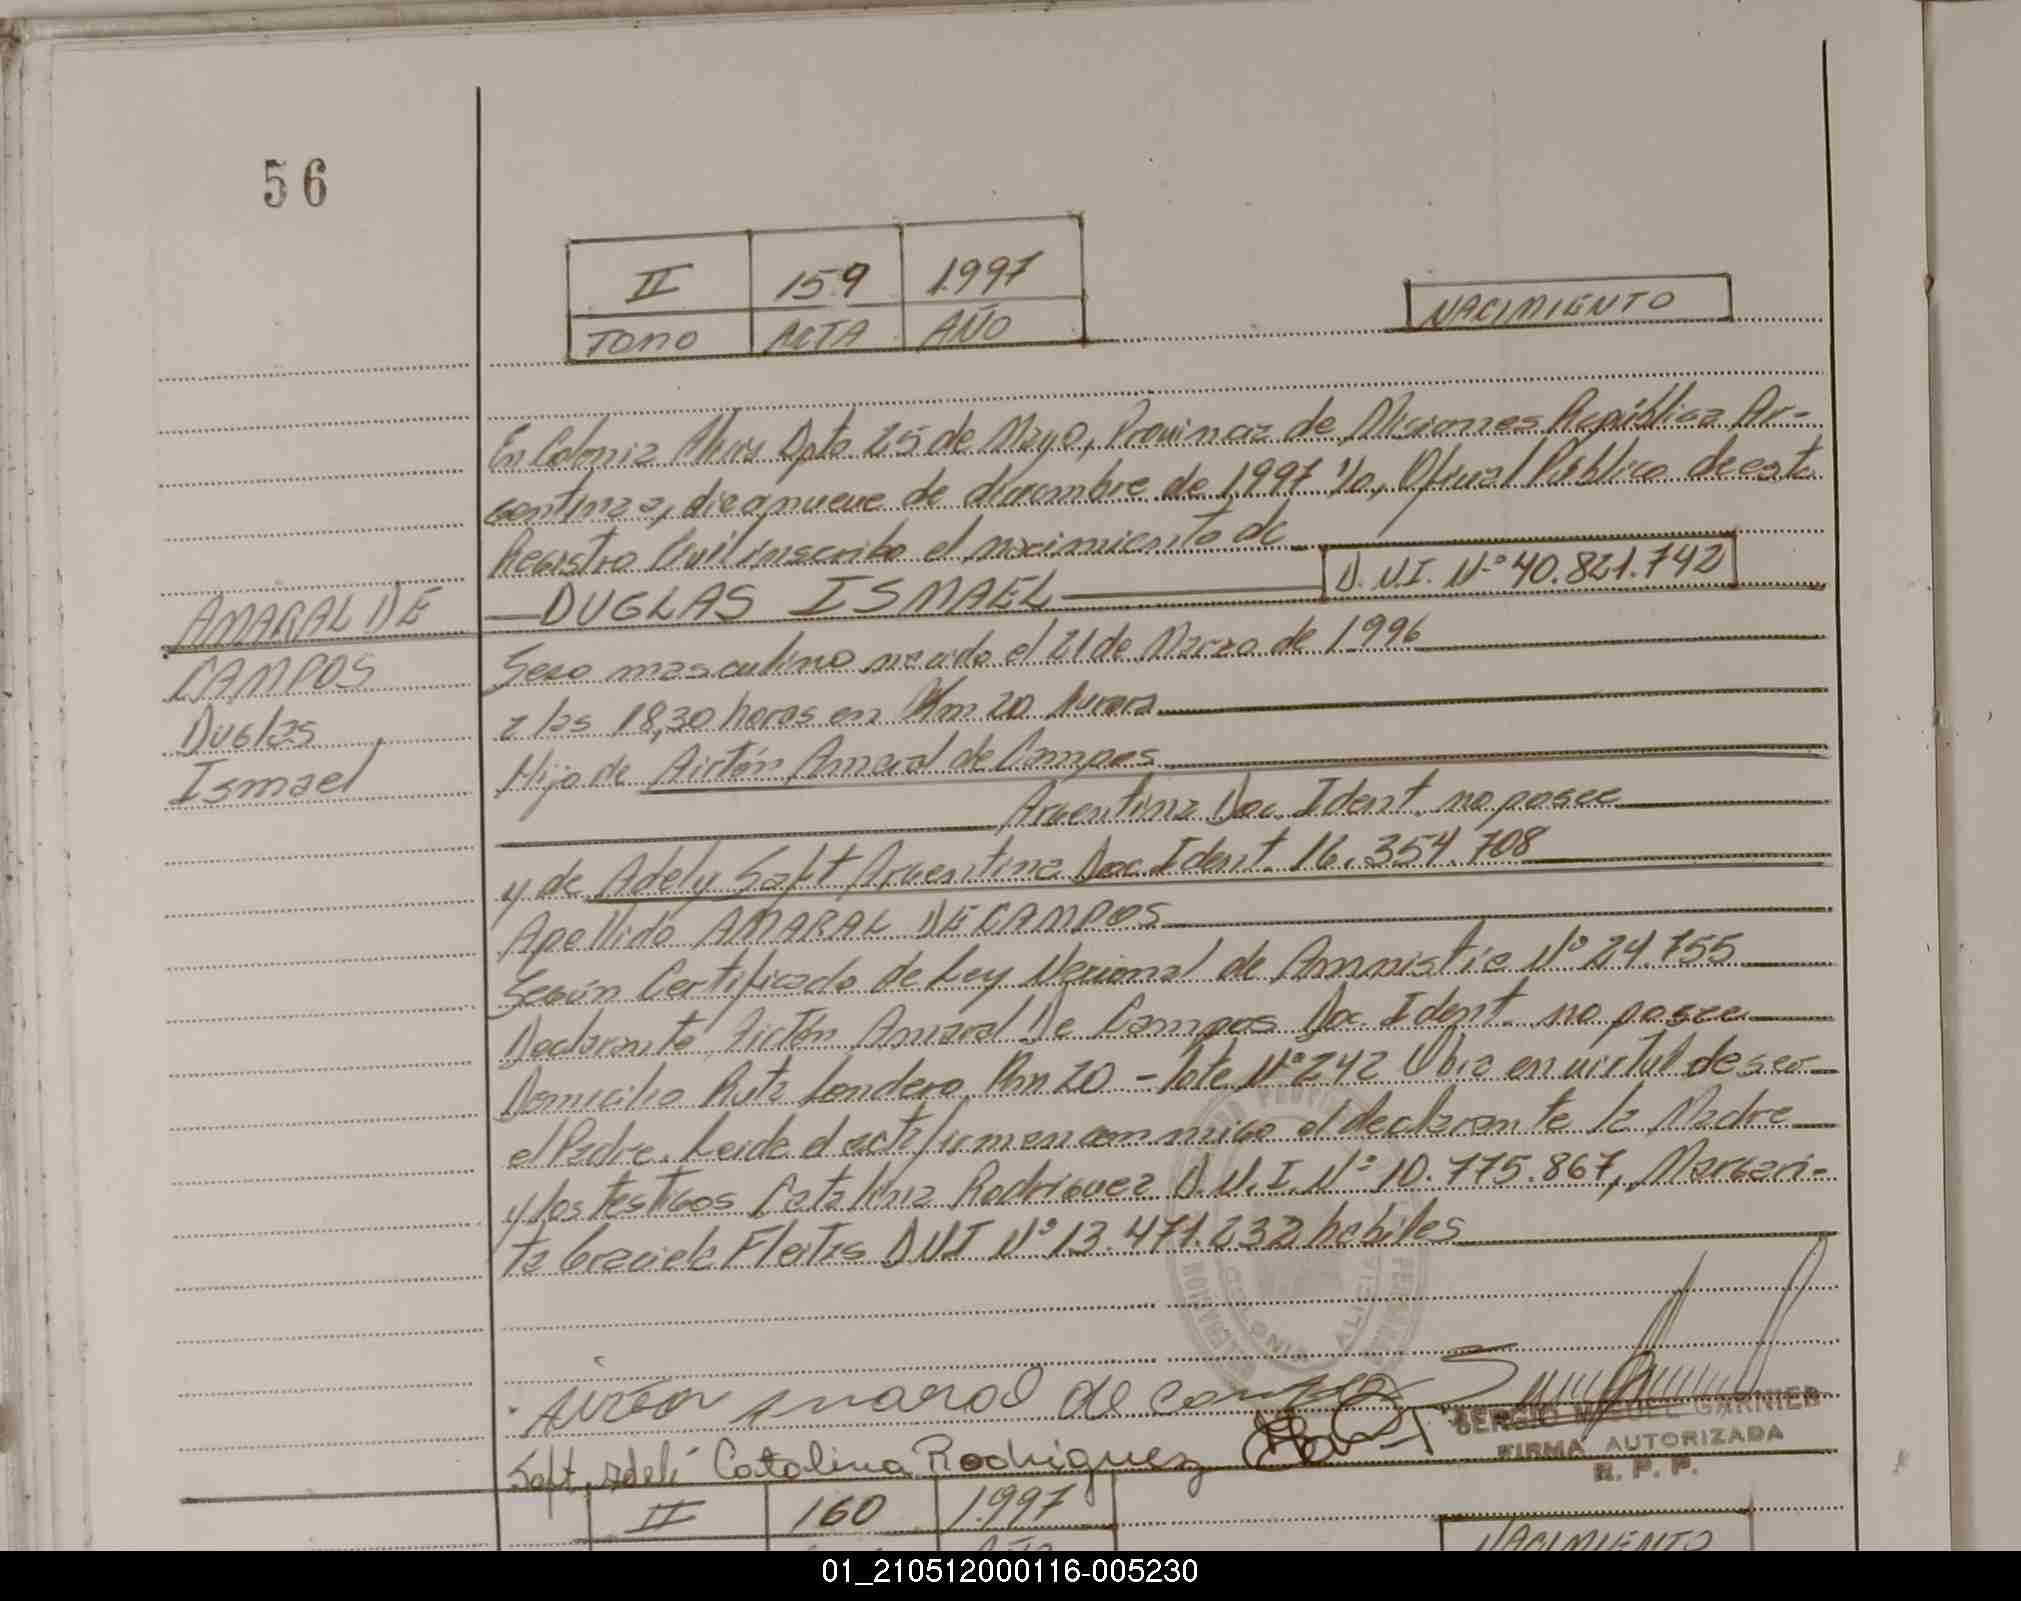 56
II 159 1.997
TOMO ACTA AÑO
NACIMIENTO
En Colonia Alicia Dpto 25 de Mayo, Provincia de Misiones República Ar-
gentina a, diecinueve de diciembre de 1997 Yo, Oficial Público de este
Registro Civil inscribo el nacimiento de
D.N.I. Nº 40.821.742
AMARAL DE
CAMPOS
Duglas
Ismael
DUGLAS ISMAEL
Sexo masculino nacido el 21 de Marzo de 1996
a las 18,30 horas en Km 20 Aurora
Hijo de Airtón Amaral de Campos
Argentina Doc. Ident. no posee
y de Adely Saft Argentina Doc. Ident. 16.354.708
Apellido AMARAL DE CAMPOS
Según Certificado de Ley Nacional de Amnistía Nº 24.755
Declarante Airtón Amaral De Campos Doc. Ident. no posee
Domicilio Ruta Londero Km 20 - lote Nº 242 Obra en virtud de ser
el Padre. Leída el acta firman conmigo el declarante la Madre
y los testigos Catalina Rodríguez D.N.I. Nº 10.775.867, Margari-
ta Graciela Fleitas DNI Nº 13.471.232 habiles
COLONIA ALICIA
Airton amaral de campos
SERGIO MIGUEL GARNIER
FIRMA AUTORIZADA
R. P. P.
Saft, Adeli Catalina Rodriguez
II 160 1.997
AÑO
NACIMIENTO
01_210512000116-005230